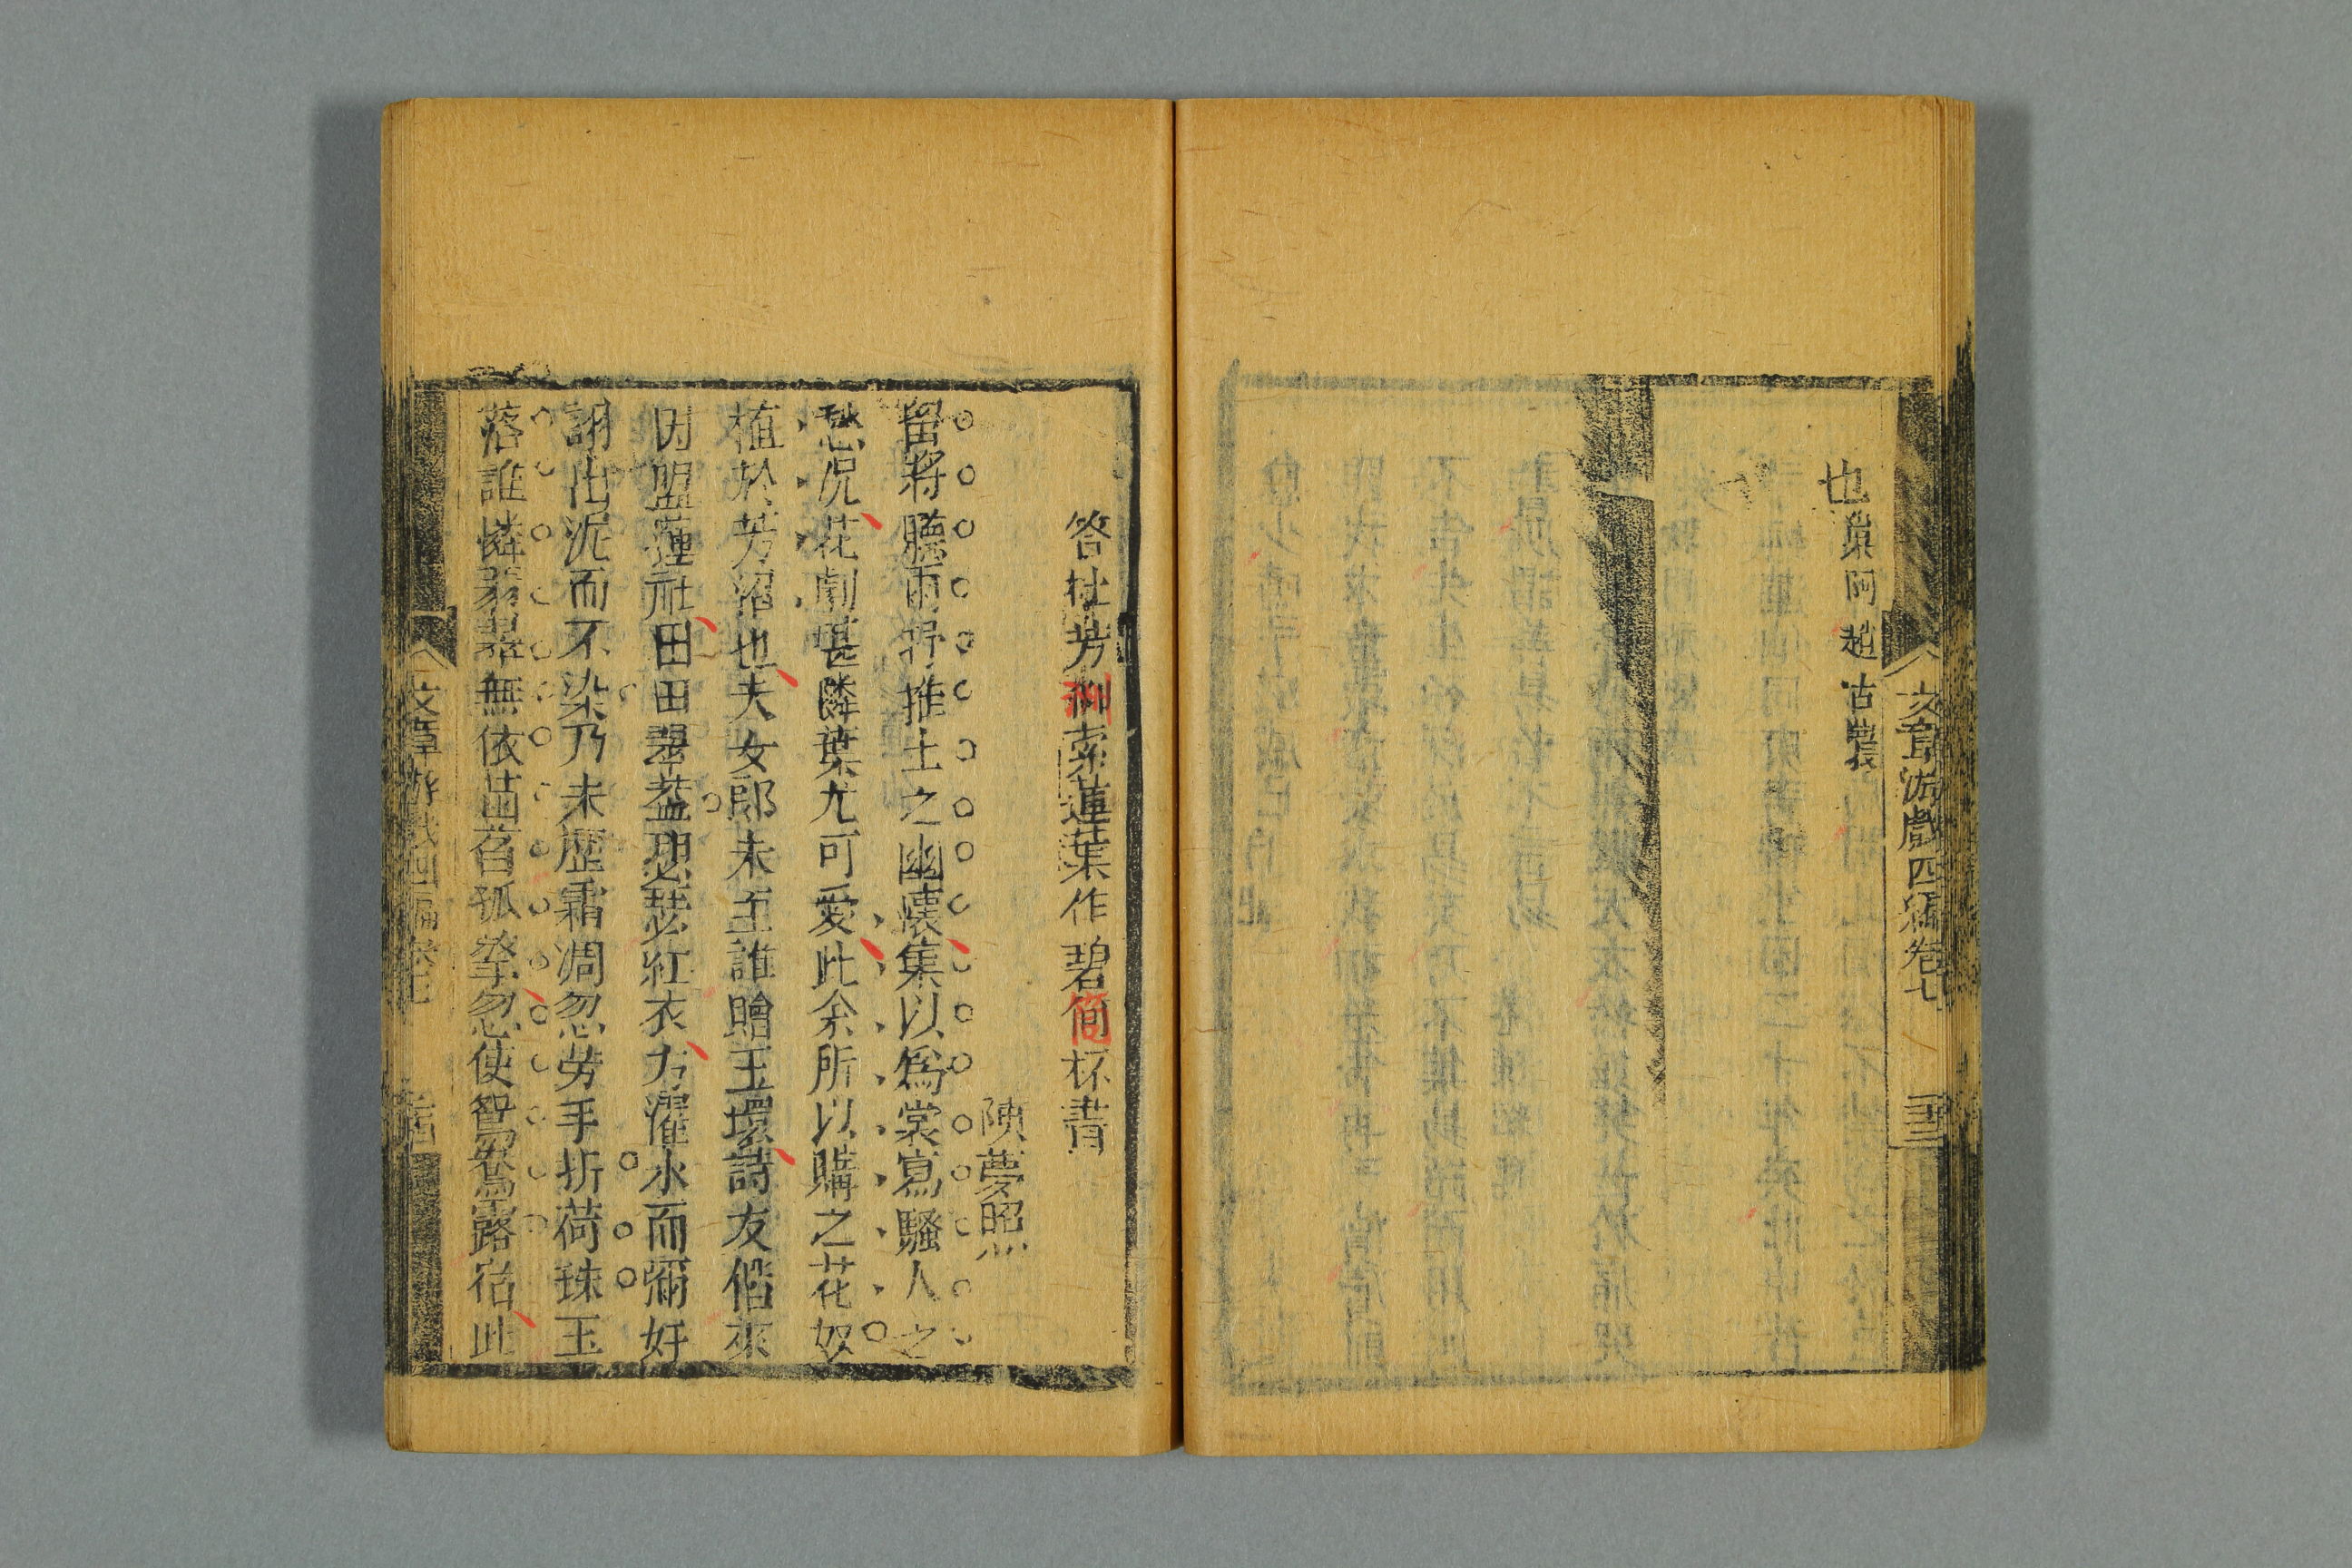 文章游戲四編卷七
二十三
也藥阿趙古農
答杜芳洲索蓮葉作碧筒杯書
陳夢照
留將聽雨抒推土之幽懷集以爲裳寫騷人之
愁況花劇甚隣葉尤可愛此余所以購之花奴
植於芳沼也夫女郎未至誰贈玉環詩友偕來
因盟蓮社田田翠葢瑟瑟紅衣方濯水而彌妍
詡出泥而不染乃未歷霜凋忽勞手折荷珠玉
落誰憐翡翠無依菡萏孤擎忽使鴛鴦露宿此
文章游戲四編卷七
二十四